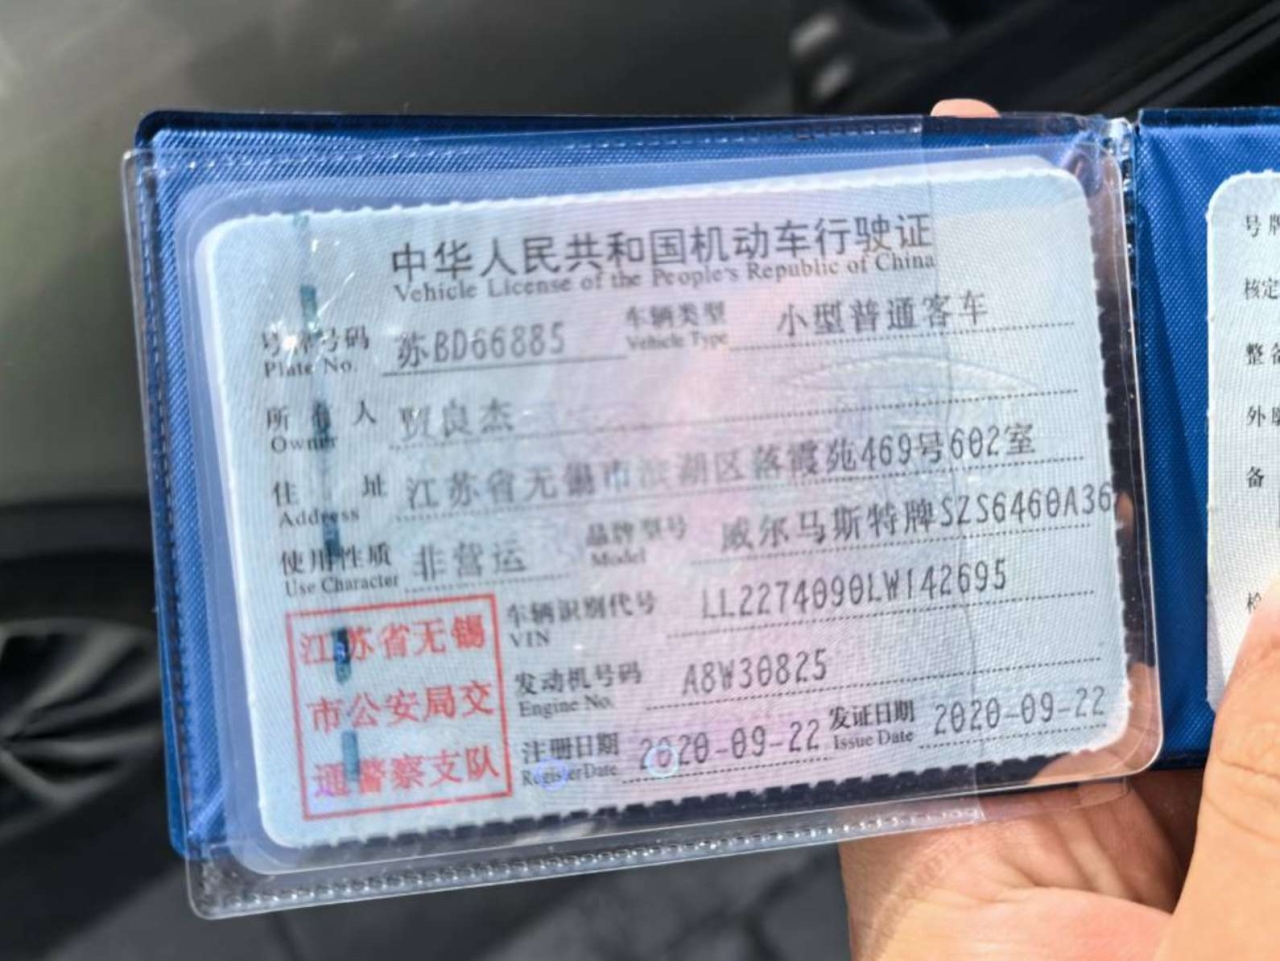 中华人民共和国机动车行驶证
Vehicle License of the People's Republic of China
号牌号码 苏BD66885 车辆类型 小型普通客车
Plate No. Vehicle Type
所有人 贾良杰
Owner
住址 江苏省无锡市滨湖区落霞苑469号602室
Address
使用性质 非营运 品牌型号 威尔马斯特牌SZS6460A36
Use Character Model
车辆识别代号 LL2274090LW142695
VIN
发动机号码 A8W30825
Engine No.
注册日期 2020-09-22 发证日期 2020-09-22
Register Date Issue Date
江苏省无锡
市公安局交
通警察支队
号牌
核定
整备
外
备
检